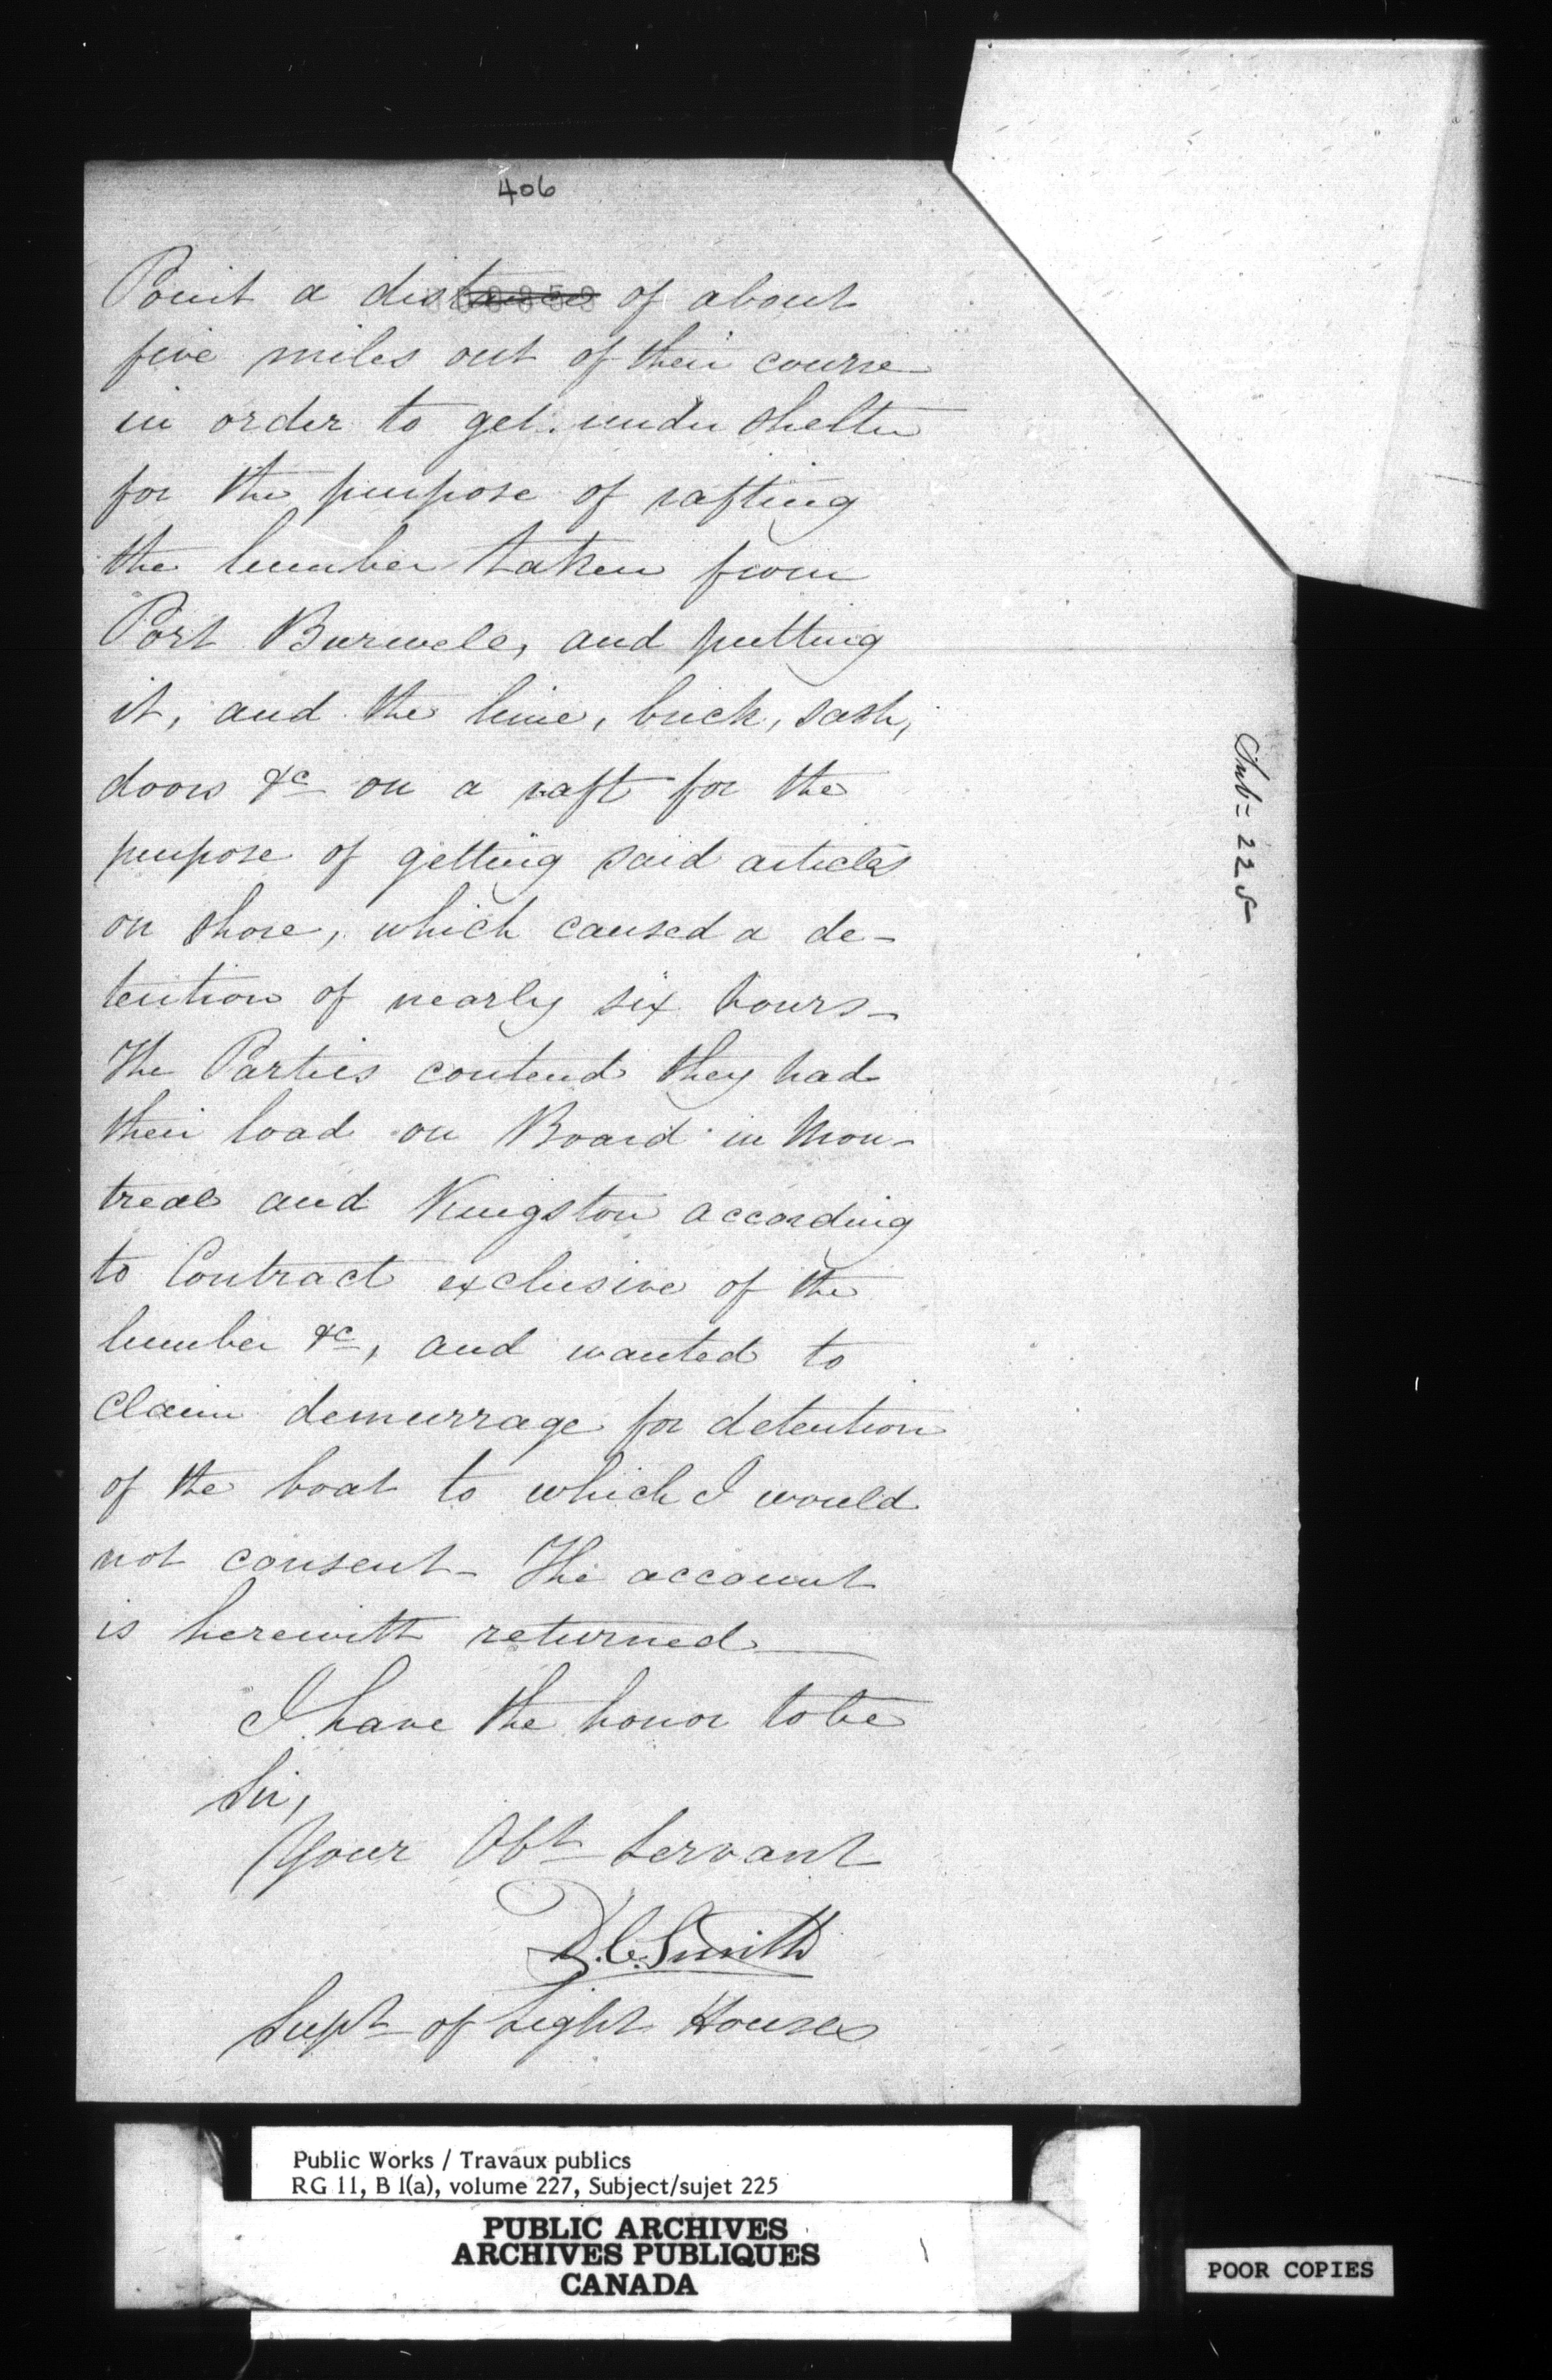 406
Point a distance of about
five miles out of their course
in order to get under shelter
for the purpose of rafting
the lumber taken from
Port Burwell, and putting
it, and the lime, brick, sash,
doors &c on a raft for the
purpose of getting said articles
on shore, which caused a de-
tention of nearly six hours-
The Parties contend they had
their load on Board in Mon-
treal and Kingston according
to Contract exclusive of the
lumber &c, and wanted to
claim demurrage for detention
of the boat to which I would
not consent- The account
is herewith returned
I have the honor to be
Sir,
Your Obt Servant
D.C. Smith
Supt of Light Houses
Sub= 225
Public Works / Travaux publics
RG 11, B 1(a), volume 227, Subject/sujet 225
PUBLIC ARCHIVES
ARCHIVES PUBLIQUES
CANADA
POOR COPIES